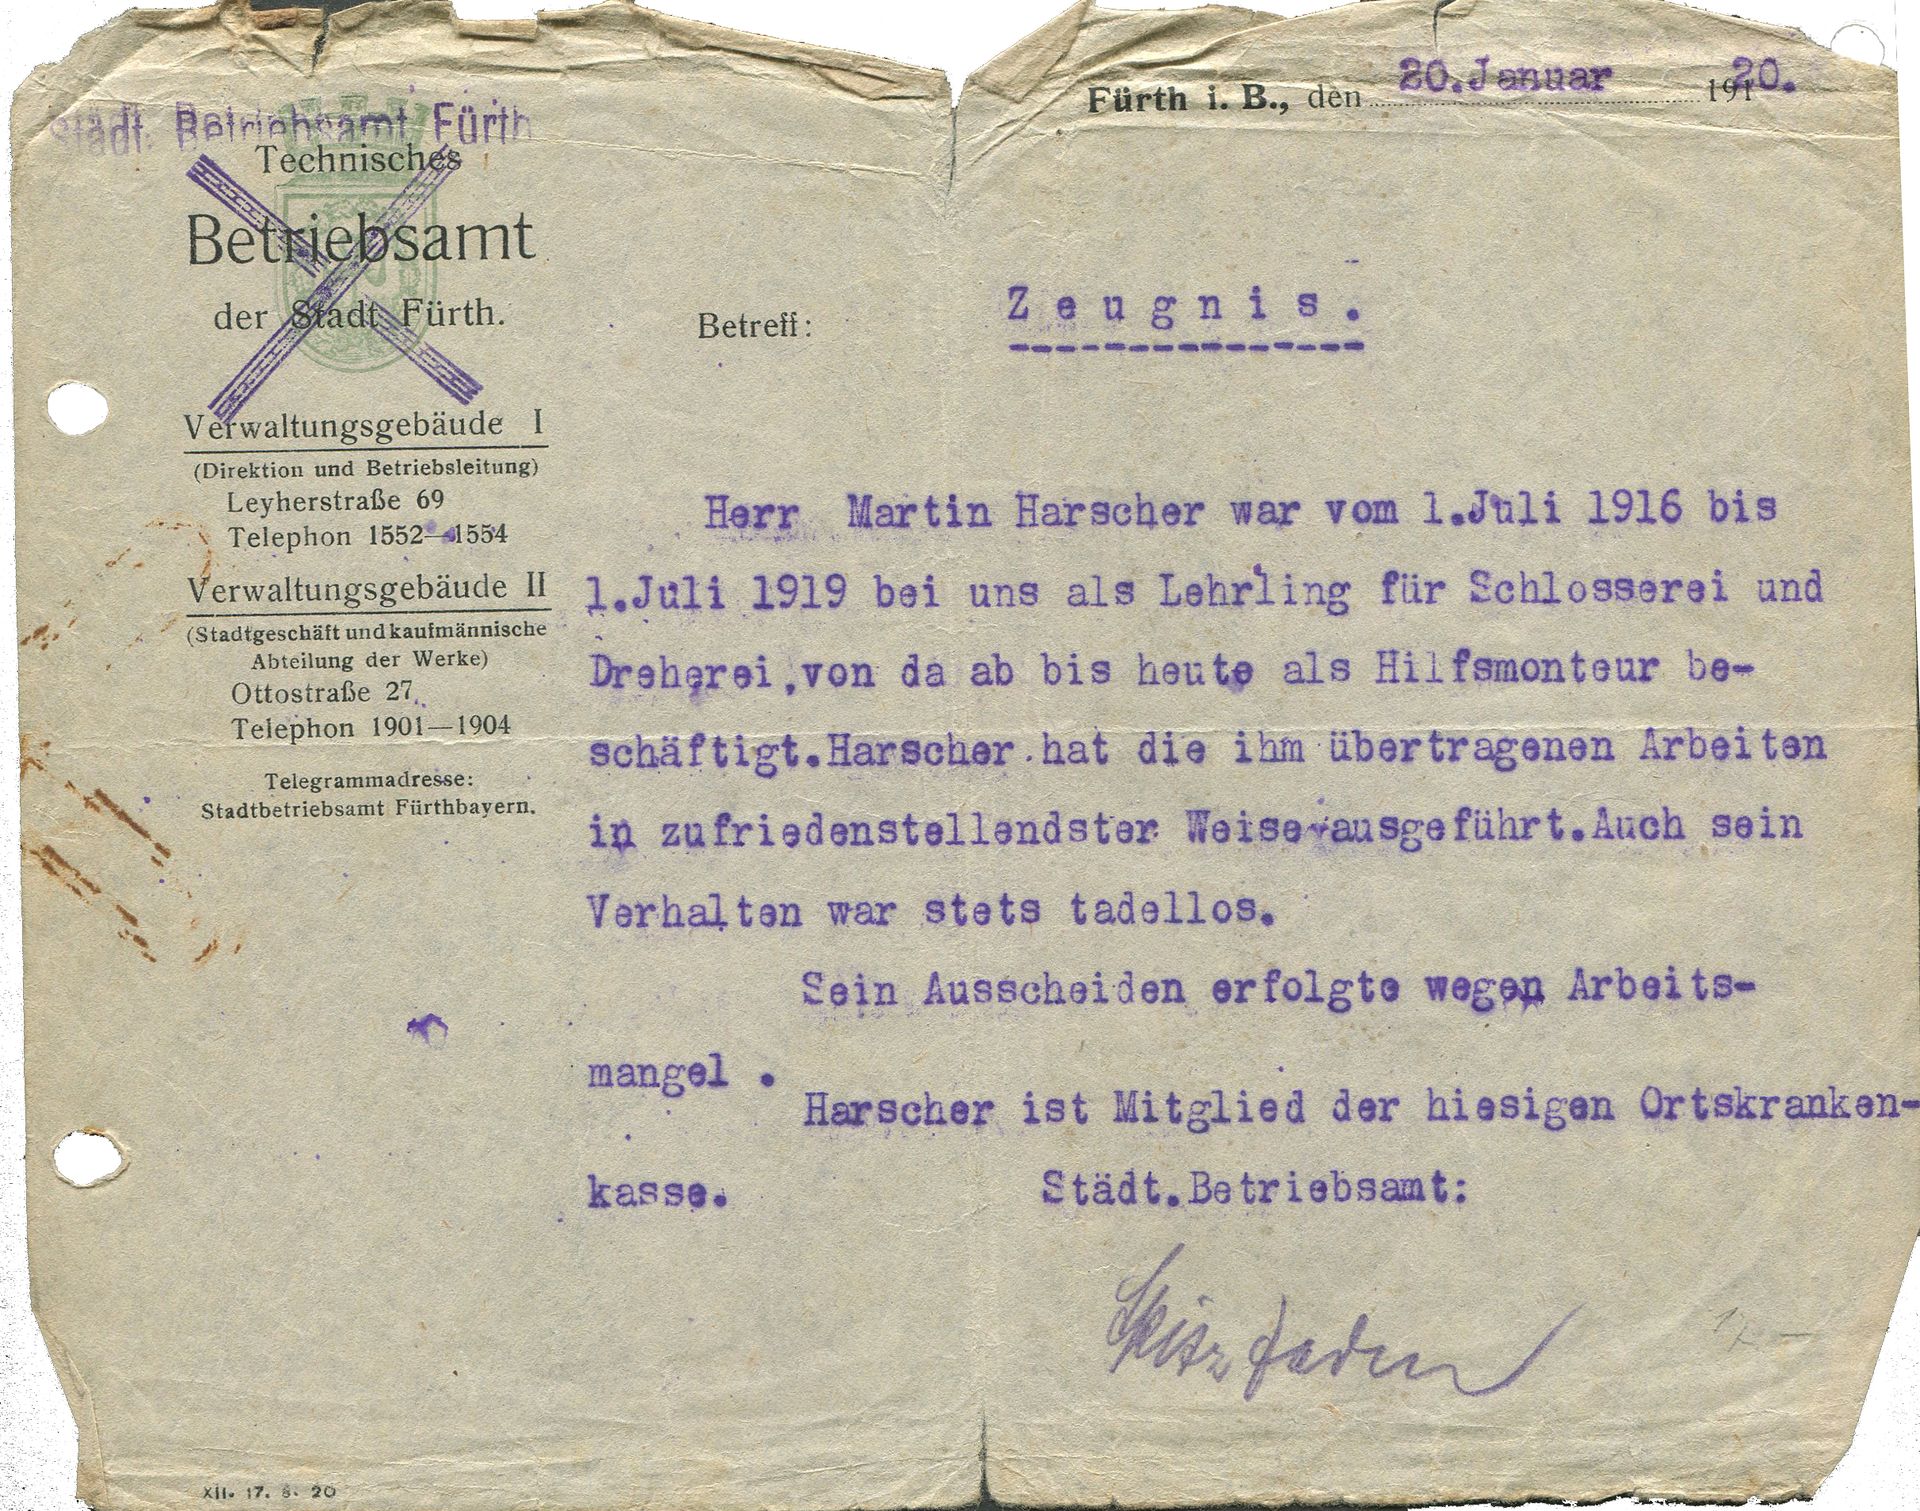 Städt. Betriebsamt Fürth
Technisches
Betriebsamt
der Stadt Fürth.
Verwaltungsgebäude I
(Direktion und Betriebsleitung)
Leyherstraße 69
Telephon 1552—1554
Verwaltungsgebäude II
(Stadtgeschäft und kaufmännische
Abteilung der Werke)
Ottostraße 27
Telephon 1901—1904
Telegrammadresse:
Stadtbetriebsamt Fürthbayern.
Fürth i. B., den 20.Januar 20.
Betreff: Zeugnis.
Herr Martin Harscher war vom 1.Juli 1916 bis
1.Juli 1919 bei uns als Lehrling für Schlosserei und
Dreherei,von da ab bis heute als Hilfsmonteur be-
schäftigt.Harscher hat die ihm übertragenen Arbeiten
in zufriedenstellendster Weise ausgeführt.Auch sein
Verhalten war stets tadellos.
Sein Ausscheiden erfolgte wegen Arbeits-
mangel .
Harscher ist Mitglied der hiesigen Ortskranken-
kasse.
Städt.Betriebsamt:
Spitzfaden
XII. 17. 20